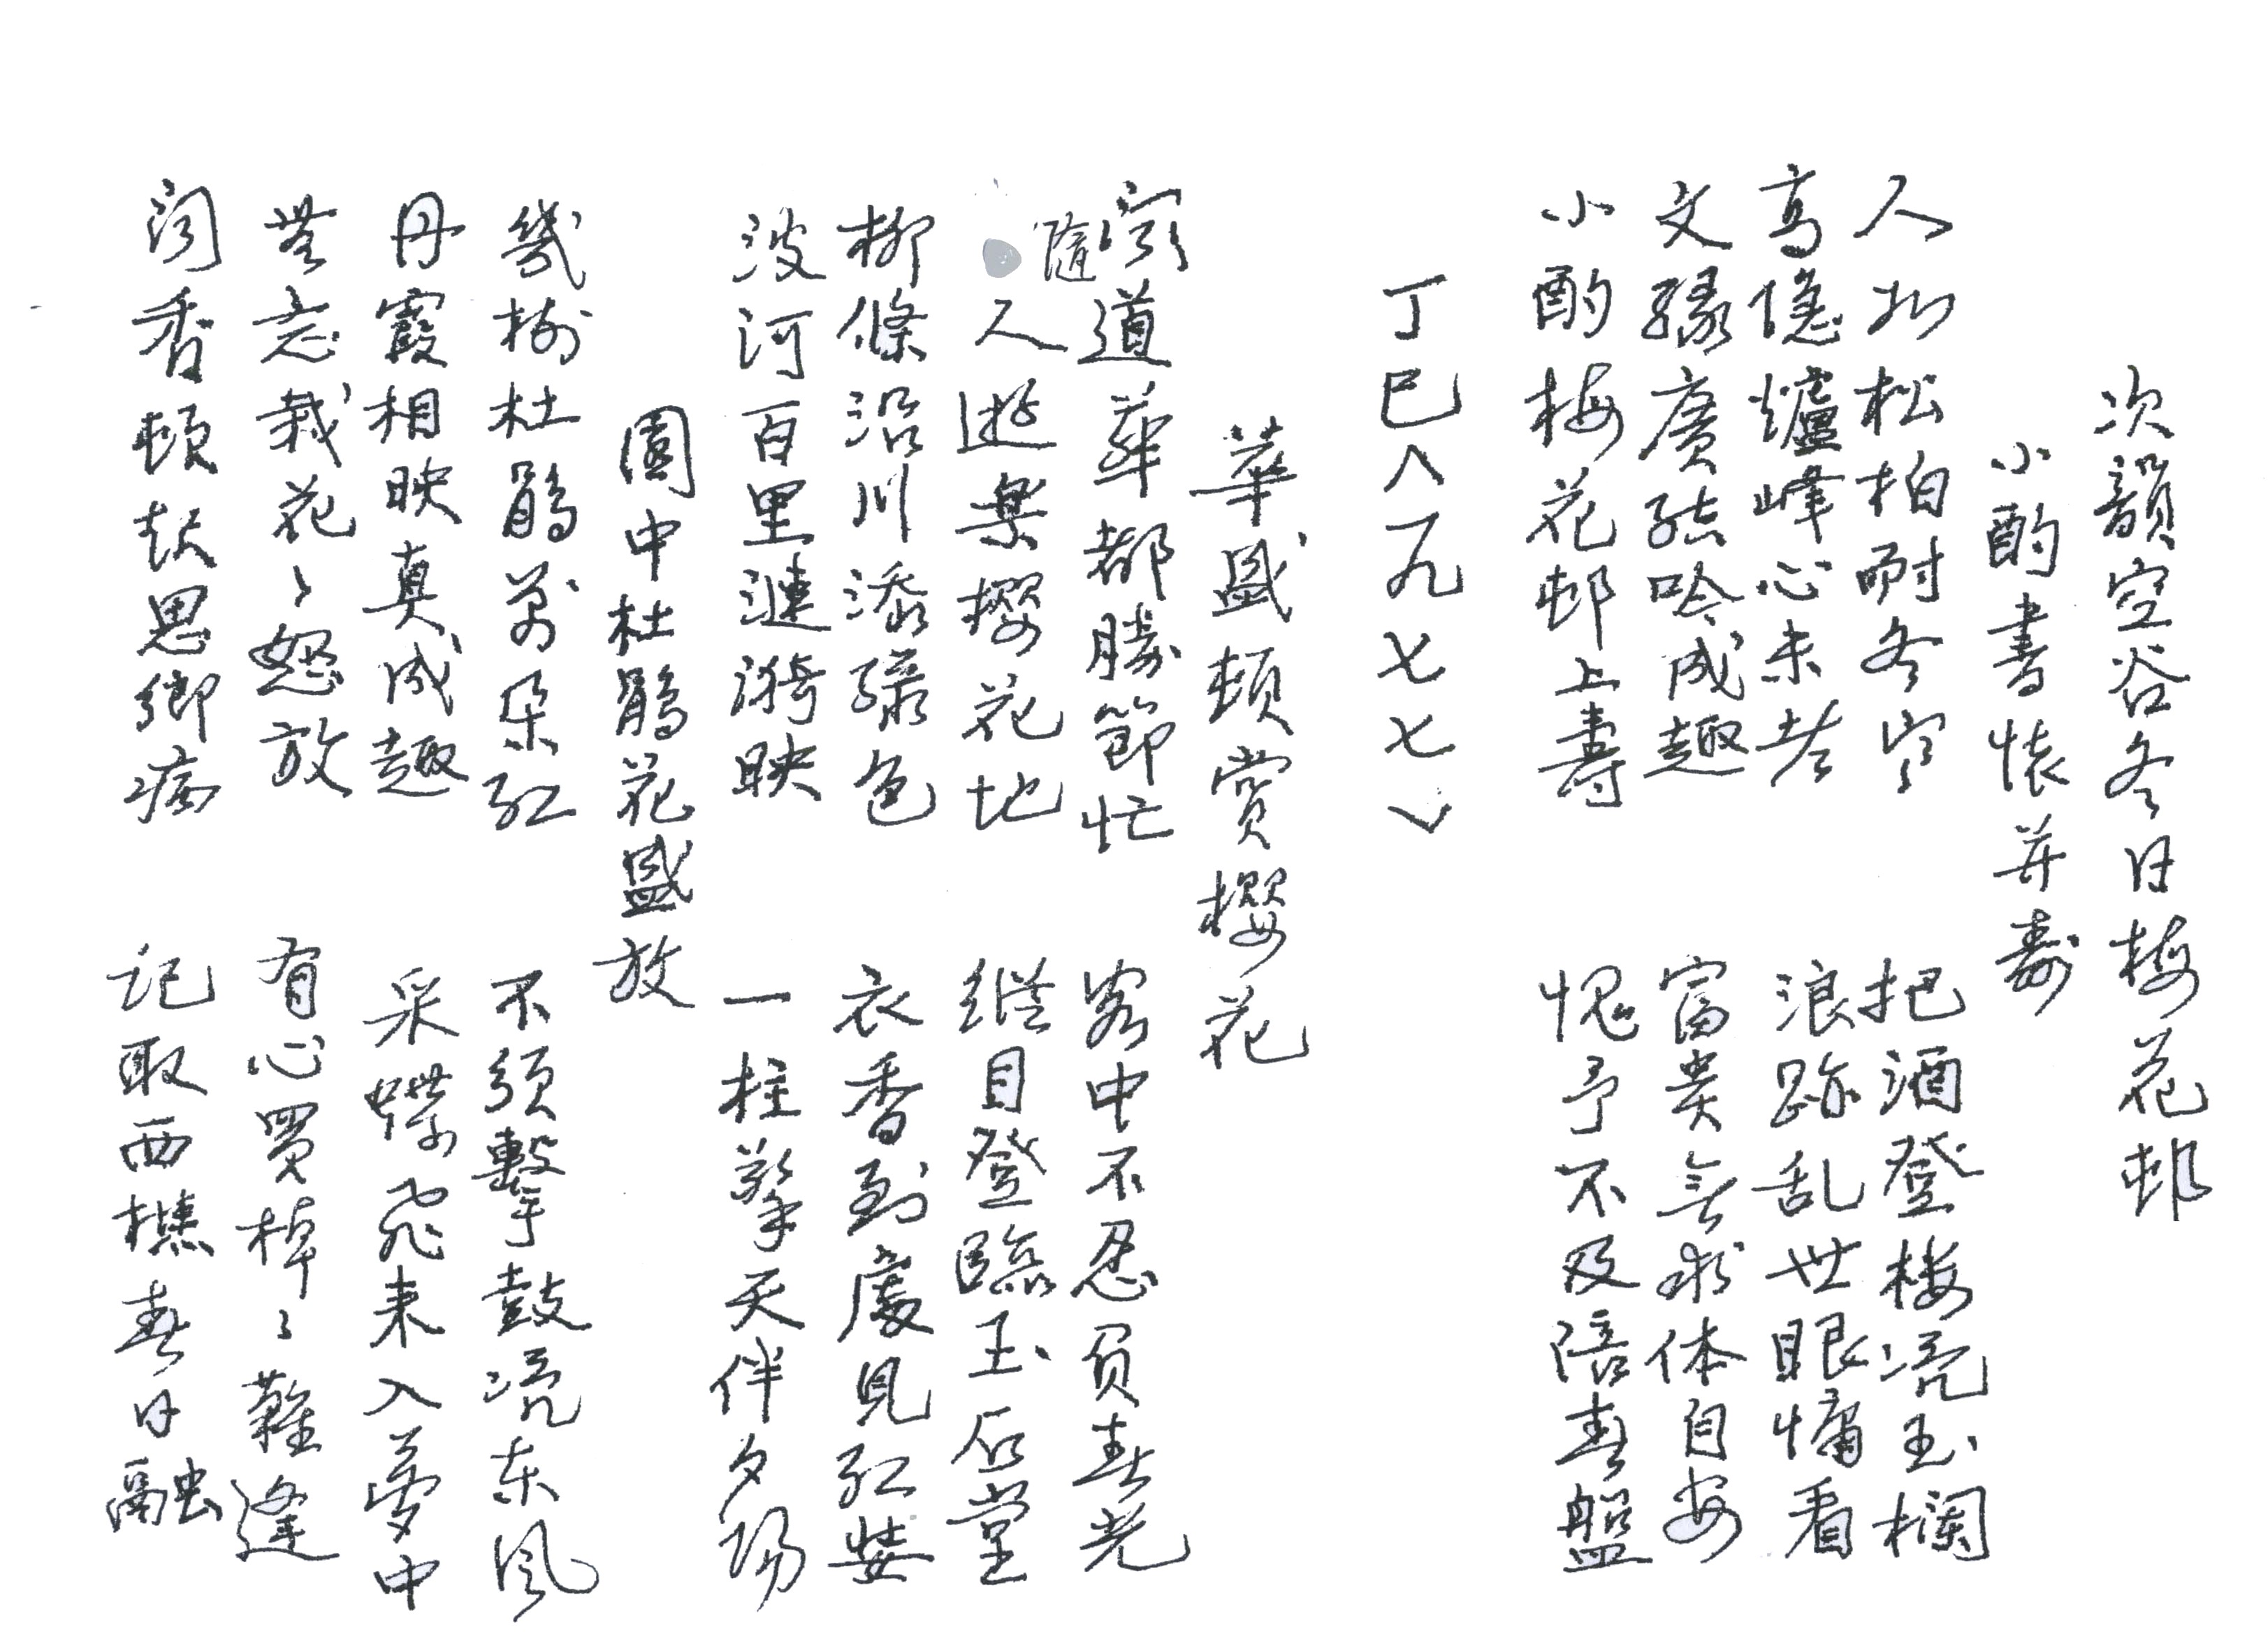 次韻空谷冬日梅花邨
小酌書懷并壽
人如松柏耐冬寒 把酒登楼凭玉欄
高隱爐峰心未老 浪跡乱世眼慵看
文緣廣结吟成趣 富贵无求体自安
小酌梅花邨上壽 愧予不及陪春盤
丁巳八一九七七、
華盛頓賞櫻花
闻道華都勝節忙 客中不忍负春光
隨人遊樂櫻花地 纵目登臨玉石堂
柳條沿川添绿色 衣香到處見红裝
波河百里漣漪映 一柱擎天伴夕陽
園中杜鹃花盛放
幾樹杜鹃万朵红 不须擊鼓凭东风
丹霞相映真成趣 采蝶飛来入夢中
無意栽花〻怒放 有心買棹〻難逢
闻香頓起思鄉病 记取西樵春日融